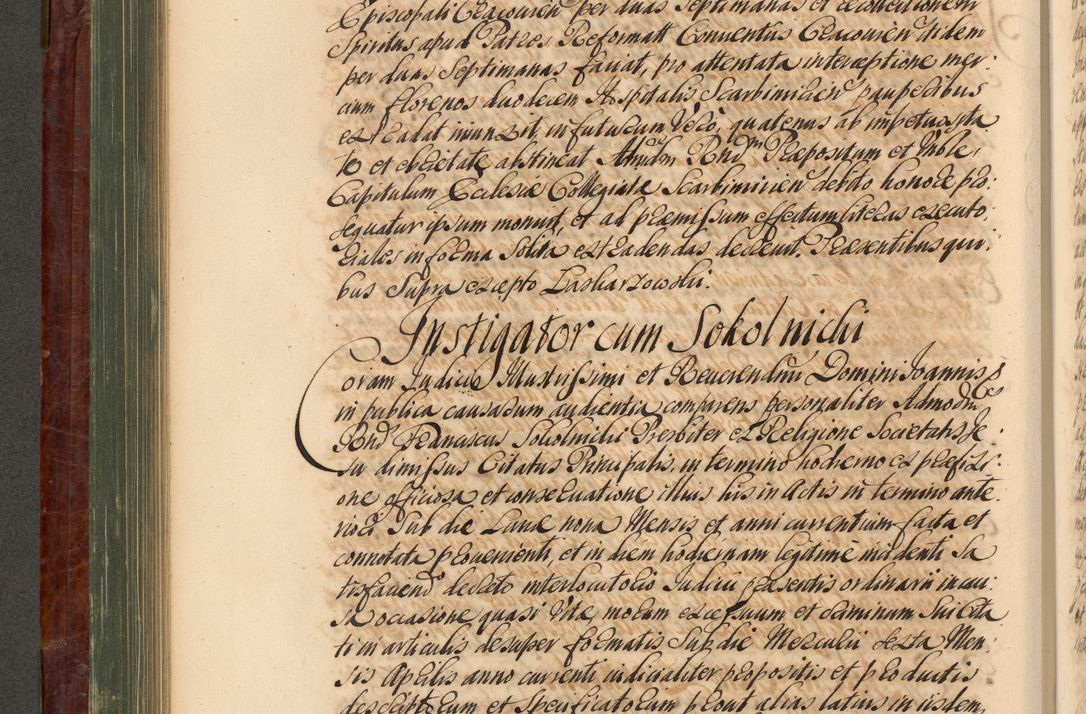 Episcopali Cracovien per duas Septimanas et recollectionem
Spiritus apud Patres Reformatt Conventus Cracovien itidem
per duas Septimanas faciat, pro attentata interceptione mer:
cium florenos duodecem Hospitalis Scarbimirien pauperibus
extradat iniunxit, in futurum Vero, quatenus ab impetuosita
te et ebrietate abstineat Admdm Rndm Præpositum et Vnble
Capitulum Ecclesiæ Collegiatæ Scarbimirien debito honore pro:
sequatur ipsum monuit, et ad præmissum effectum literas executo:
riales in forma Solita extradendas decrevit. Præsentibus qui:
bus Supra excepto Laskarzowski.
Instigator cum Sokolnicki
Coram Judicio Illustrissimi et Reverendmi Domini Joannis &c
in publica causarum audientia comparens personaliter Admodm
Rnds Franciscus Sokolnicki Presbiter ex Religione Societatis Je:
su dimissus Citatus Principalis, in termino hodierno ex præfixi:
one officiosa et conservatione illius hic in Actis in termino ante
riori Sub die Lunæ nona Mensis et anni currentium facta et
connotata provenienti, et in diem hodiernam legitime incidenti Sa
tisfaciend decreto interlocutorio Judicii præsentis ordinarii in cau:
sa occasione quasi Vitæ, morum excessuum et criminum Sui Cita
ti in articulis desuper formatis Sub die Mercurii sexta Men:
sis Aprilis anno currenti iudicialiter propositis et productis
descriptorum et Specificatorum prout alias latius in iisdem